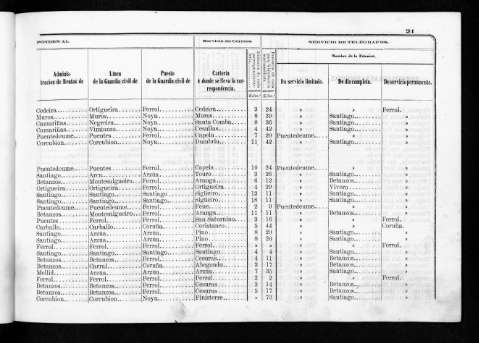 21
SERVICIO DE CORREOS.
SERVICIO DE TELÉGRAFOS.
Nombre de la Estacion.
Adminis- tracion de Rentas de
Línea de la Guardia civil de
Puesto de la Guardia civil de
Cartería á donde se lleva la correspondencia.
De servicio limitado.
De dia completo.
De servicio permanente.
Cedeira Ortigueira Ferrol Cedeira 3 24 » » Ferrol
Muros Muros Noya Muros 8 39 » Santiago »
Camariñas Negreira Noya Santa Comba 8 36 » Santiago »
Camariñas Vimianzo Noya 4 42 » Santiago »
Puentedeume Puentes Ferrol Capela 7 20 Puentedeume » »
Corcubion Corcubion Noya Dumbría 11 42 » Santiago »
Puentedeume Puentes Ferrol Capela 10 24 Puentedeume » »
Santiago Arzúa Arzúa Touro 3 26 » Santiago »
Betanzos Montesalgueiro Ferrol Aranga 6 12 » Betanzos »
Ortigueira Ortigueira Ferrol Ortigueira 4 29 » Vivero »
Santiago Santiago Santiago Sigüeiro 12 11 » Santiago »
Santiago Santiago Santiago Sigüeiro 18 11 » Santiago »
Puentedeume Puentedeume Ferrol Fene 2 9 Puentedeume » »
Betanzos Montesalgueiro Ferrol Aranga 11 11 » Betanzos »
Puentes Ferrol Ferrol San Saturnino 3 16 » » Ferrol
Carballo Carballo Coruña Coristanco 5 44 » » Coruña
Santiago Arzúa Arzúa Pino 8 20 » Santiago »
Santiago Arzúa Arzúa Pino 8 26 » Santiago »
Ferrol Ferrol Ferrol » » » » Ferrol
Santiago Santiago Santiago Santiago 4 4 » Santiago »
Betanzos Betanzos Ferrol Cesuras 4 11 » Betanzos »
Betanzos Carral Coruña Abegondo 3 17 » Betanzos »
Mellid Arzúa Arzúa Arzúa 7 35 » Santiago »
Ferrol Ferrol Ferrol Ferrol 2 2 » » Ferrol
Betanzos Betanzos Ferrol Cesuras 3 14 » Betanzos »
Betanzos Betanzos Ferrol Cesuras 5 17 » Betanzos »
Corcubion Corcubion Noya Finisterre » 73 » Santiago »